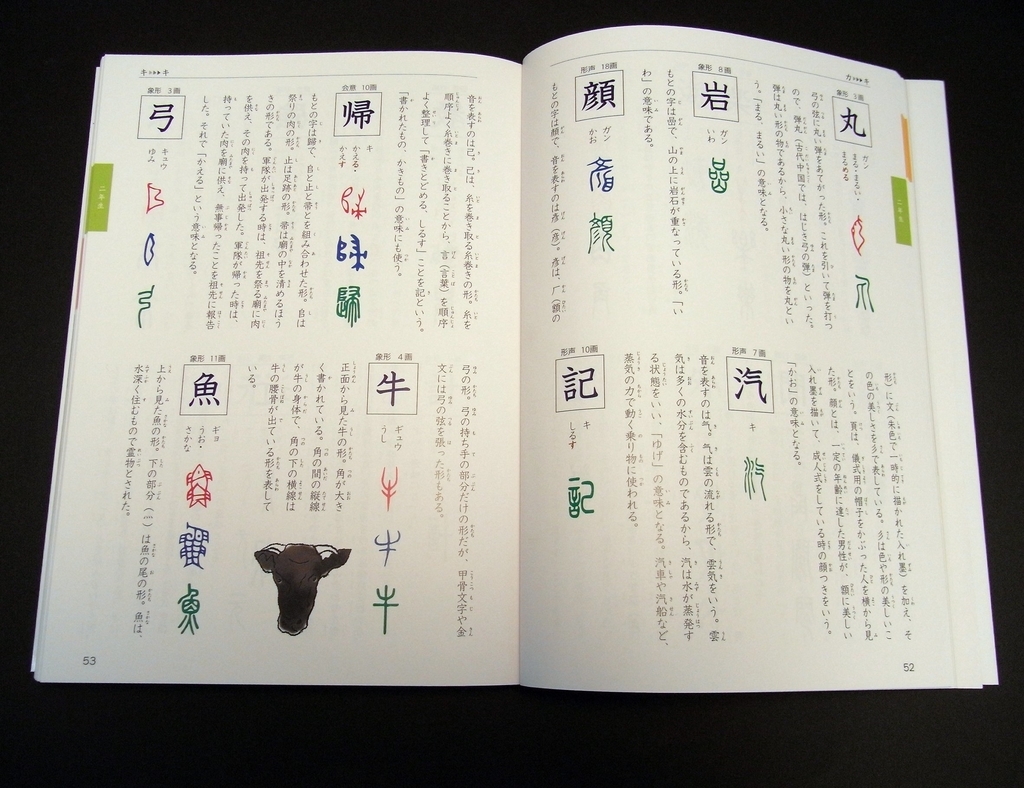 カ▹▸▸キ
二年生
象形 3画
丸
ガン
まる・まるい・
まるめる
弓の弦に丸い弾をあてがった形。これを引いて弾を打つ
ので、弾丸（古代中国では、はじき弓の弾）といった。
弾は丸い形の物であるから、小さな丸い形の物を丸とい
う。「まる、まるい」の意味となる。
象形 8画
岩
ガン
いわ
もとの字は嵒で、山の上に岩石が重なっている形。「い
わ」の意味である。
形声 18画
顔
ガン
かお
もとの字は顏で、音を表すのは彦（彥）。彦は、厂（額の
形）に文（朱色で一時的に描かれた入れ墨）を加え、そ
の色の美しさを彡で表している。彡は色や形の美しいこ
とをいう。頁は、儀式用の帽子をかぶった人を横から見
た形。顔とは、一定の年齢に達した男性が、額に美しい
入れ墨を描いて、成人式をしている時の顔つきをいう。
「かお」の意味となる。
形声 7画
汽
キ
音を表すのは气。气は雲の流れる形で、雲気をいう。雲
気は多くの水分を含むものであるから、汽は水が蒸発す
る状態をいい、「ゆげ」の意味となる。汽車や汽船など、
蒸気の力で動く乗り物に使われる。
形声 10画
記
キ
しるす
52
キ▹▸▸キ
二年生
音を表すのは己。己は、糸を巻き取る糸巻きの形。糸を
順序よく糸巻きに巻き取ることから、言（言葉）を順序
よく整理して「書きとどめる、しるす」ことを記という。
「書かれたもの、かきもの」の意味にも使う。
会意 10画
帰
キ
かえる・
かえす
もとの字は歸で、𠂤と止と帚とを組み合わせた形。𠂤は
祭りの肉の形。止は足跡の形。帚は廟の中を清めるほう
きの形である。軍隊が出発する時は、祖先を祭る廟に肉
を供え、その肉を持って出発した。軍隊が帰った時は、
持っていた肉を廟に供え、無事帰ったことを祖先に報告
した。それで「かえる」という意味となる。
象形 3画
弓
キュウ
ゆみ
弓の形。弓の持ち手の部分だけの形だが、甲骨文字や金
文には弓の弦を張った形もある。
象形 4画
牛
ギュウ
うし
正面から見た牛の形。角が大き
く書かれている。角の間の縦線
が牛の身体で、角の下の横線は
牛の腰骨が出ている形を表して
いる。
象形 11画
魚
ギョ
うお・
さかな
上から見た魚の形。下の部分（灬）は魚の尾の形。魚は、
水深く住むもので霊物とされた。
53